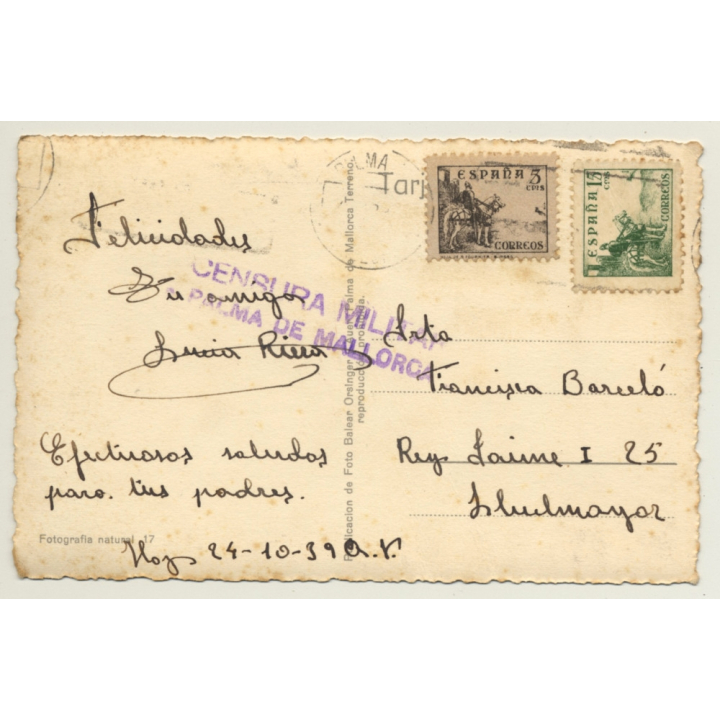 Felicidades
Tu amiga
Lucia Riera
Efectuosos saludos
para. tus padres.
Hoy 24-10-39 A.V.
Fotografia natural 17
CENSURA MILITAR
PALMA DE MALLORCA
Publicacion de Foto Balear Orsinger Palma de Mallorca Terreno.
reproducción prohibida.
PALMA
Tarj
ESPAÑA 5
CTS
CORREOS
ESPAÑA 15
CTS
CORREOS
Srta
Francisca Barceló
Rey Jaime I 25
Lluchmayor